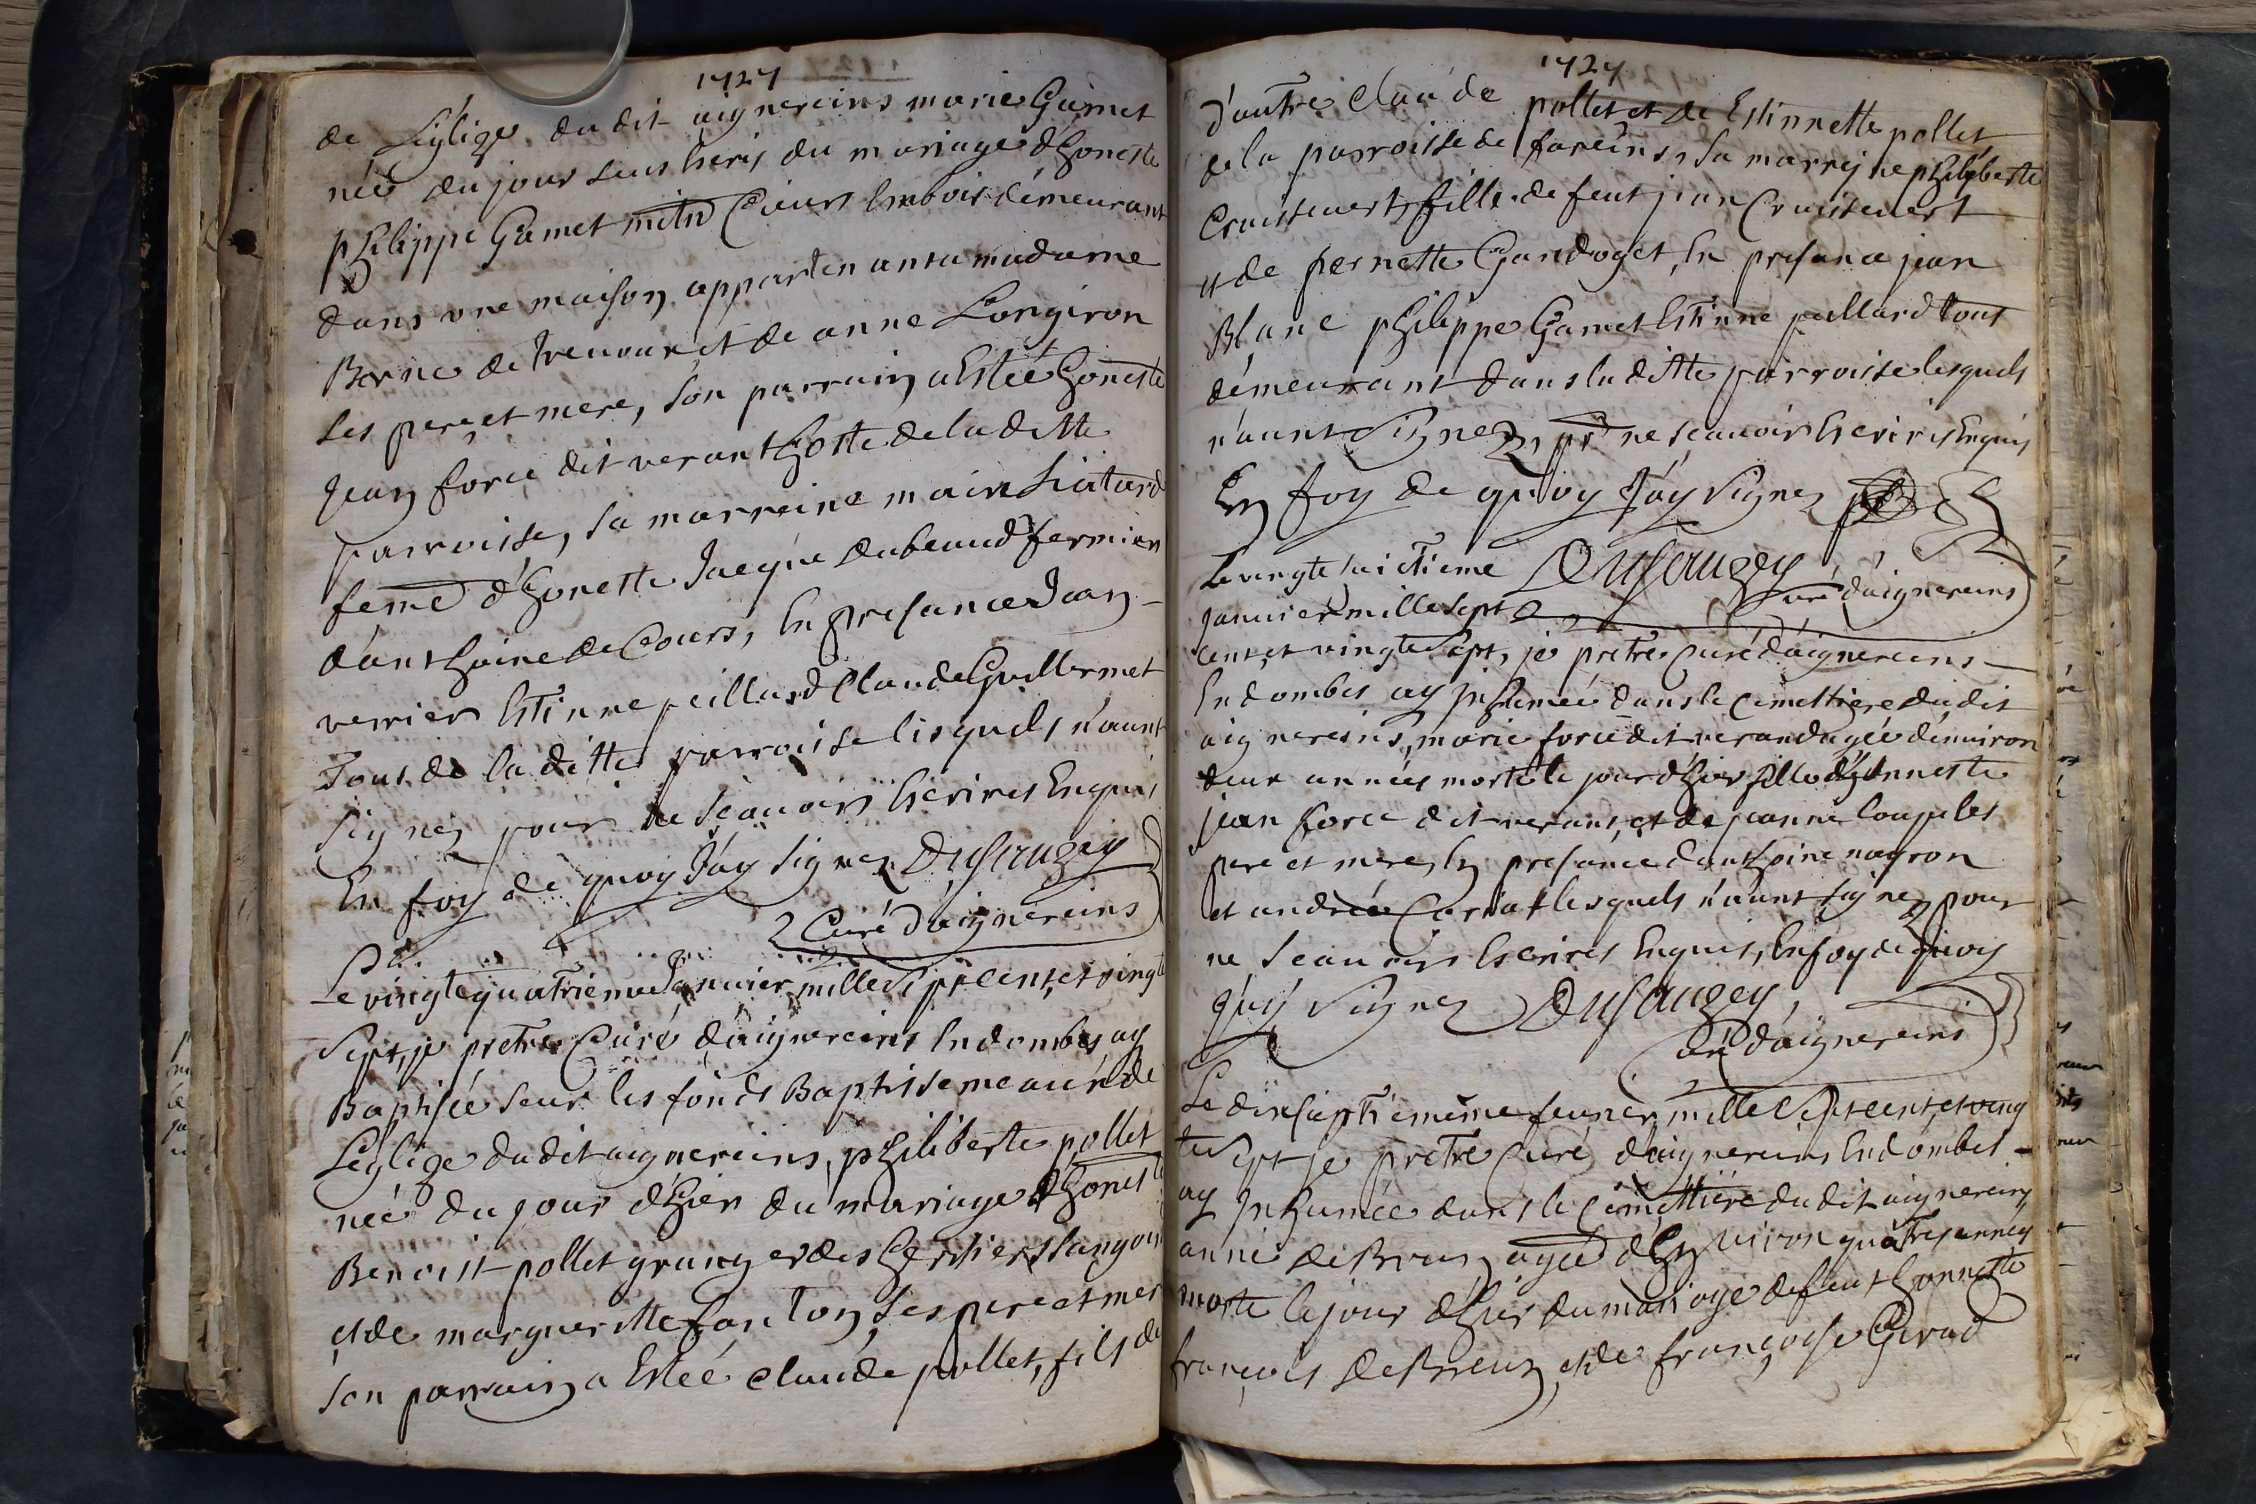 1727
de Léglize du dit aignereins marie Gamet
née du jour du mariage dhoneste
philippe Gamet demeurant
dans une maison appartenant a madame
Berne de trevoux et de anne Longiron
ses pere et mere, son parrain a Estéé honeste
Jean force dit verant hoste de la ditte
parroisse, sa marreine
feme d'honeste Jacque dubeaud fermier
danthoine de Cours, En presance Jean
verrier Estinne peillard Claude Guillermet
Tous de la ditte parroisse lesquels n'aunt
signez pour ne scauoirs Escrires Enquis
En foy de quoy Jáy signez Dusauzey
Curé daignereins
Le vingte quatrieme Januier mille sept cent, et vingte
sept, je pretre Curé daignereins En dombes ay
Baptisée seur les fonds Baptissemeaux de
Léglize du dit aignereins, philiberte pollet
née du jour dhier du mariage dhoneste
Benoist pollet granger des
et de margueritte fanton ses pere et mere
son parrain a Estéé claude pollet, fils de
1727
d'autre claude pollet et de Estinnette pollet
de la parroisse de fareins, sa marreine philiberte
Cruisseuert, fille de feut jean Cruisseuert
et de pernette Gandoget, En presance jean
Blanc philippe Gamet Estinne peillard tout
démeurant dans la ditte parroisse lesquels
n'aunt signez, pr ne scauoir Escrires Enquis
En foy de quoy Jáy signez
Dusauzey
curé d'aignereins
Le vingte huictieme
Januier mille sept
cent, et vingte sept, je pretre Curé d'aignereins
En dombes ay Inhumée dans le Cimettiere du dit
aignereins, marie force dit verand agée dénuiron
deux années morte le jour dhier fille dhonneste
jean force dit verant, et de jeanne loup ses
pere et mere, En presance danthoine nagron
et andrée Carriat lesquels n'aunt signez pour
ne scauoirs Escrires Enquis, En foy de quoy
J'áy signez Dusauzey,
curé d'aignereins
Le dixseptiememe feurier, mille sept cent, et ving
te sept je pretre Curé d'aignereins En dombes
ay Inhumée dans le Cimettiere du dit aignereins
anne agée dEnuiron quatres années
morte le jour dhier du mariage de feut honneste
françois et de françoise Girad